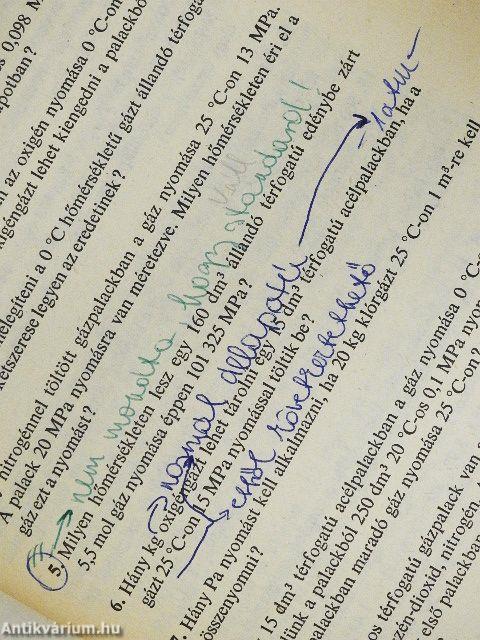 s 0,098 M
potban?
en az oxigén nyomása 0 °C-on
igéngázt lehet kiengedni a palackból
elegíteni a 0 °C hőmérsékletű gázt állandó térfoga
kétszerese legyen az eredetinek?
nitrogénnel töltött gázpalackban a gáz nyomása 25 °C-on 13 MPa.
A palack 20 MPa nyomásra van méretezve. Milyen hőmérsékleten éri el a
gáz ezt a nyomást?
→ nem mondta, hogy standard!
5. Milyen hőmérsékleten lesz egy 160 dm³ állandó térfogatú edénybe zárt
5,5 mol gáz nyomása éppen 101 325 MPa?
→ normál állapotú → 1 atm
6. Hány kg oxigéngázt lehet tárolni egy 15 dm³ térfogatú acélpalackban, ha a
gázt 25 °C-on 15 MPa nyomással töltik be?
→ ebből következtethető
7. Hány Pa nyomást kell alkalmazni, ha 20 kg klórgázt 25 °C-on 1 m³-re kell
összenyomni?
15 dm³ térfogatú acélpalackban a gáz nyomása 0 °C
ünk a palackból 250 dm³ 20 °C-os 0,1 MPa nyo
alackban maradó gáz nyomása 25 °C-on?
os térfogatú gázpalack van a
én-dioxid, nitrogén,
első palackban
Antikvárium.hu